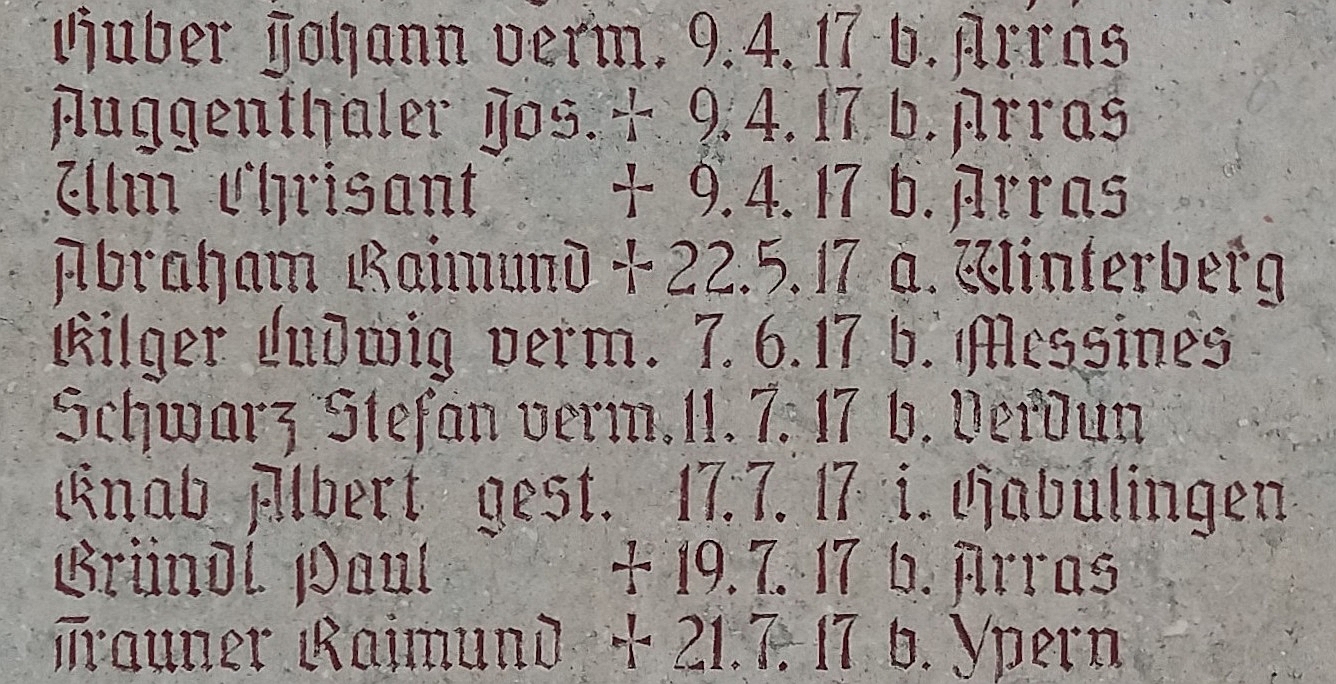 Huber Johann verm. 9.4.17 b. Arras
Auggenthaler Jos. † 9.4.17 b. Arras
Ulm Chrisant † 9.4.17 b. Arras
Abraham Raimund † 22.5.17 a. Winterberg
Kilger Ludwig verm. 7.6.17 b. Messines
Schwarz Stefan verm. 11.7.17 b. Verdun
Knab Albert gest. 17.7.17 i. Habulingen
Gründl Paul † 19.7.17 b. Arras
Trauner Raimund † 21.7.17 b. Ypern